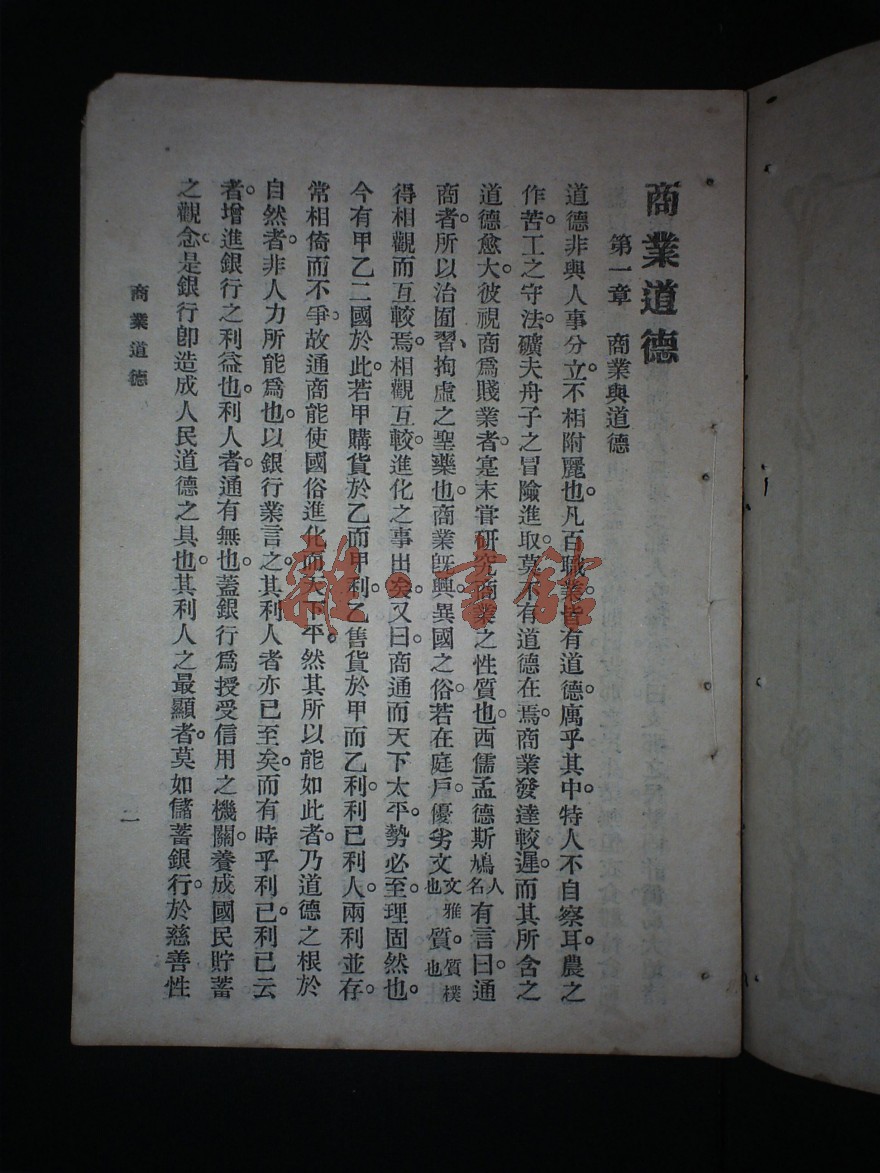 商業道德
第一章　商業與道德
道德非與人事分立不相附麗也。凡百職業皆有道德寓乎其中。特人不自察耳。農之
作苦。工之守法。礦夫舟子之冒險進取。莫不有道德在焉。商業發達較遲。而其所含之
道德愈大。彼視商爲賤業者。寔未嘗研究商業之性質也。西儒孟德斯鳩人名有言曰。通
商者。所以治囿習、拘虛之聖藥也。商業旣興。異國之俗。若在庭戶。優劣文文雅也質。質樸也
得相觀而互較焉。相觀互較。進化之事出矣。又曰。商通而天下太平。勢必至。理固然也。
今有甲乙二國於此。若甲購貨於乙而甲利。乙售貨於甲而乙利。利己利人。兩利並存。
常相倚而不爭。故通商能使國俗進化而天下平。然其所以能如此者。乃道德之根於
自然者。非人力所能爲也。以銀行業言之。其利人者亦已至矣。而有時乎利己。利己云
者。增進銀行之利益也。利人者。通有無也。蓋銀行爲授受信用之機關。養成國民貯蓄
之觀念。是銀行卽造成人民道德之具也。其利人之最顯者。莫如儲蓄銀行。於慈善性
商業道德
一
雜·書館